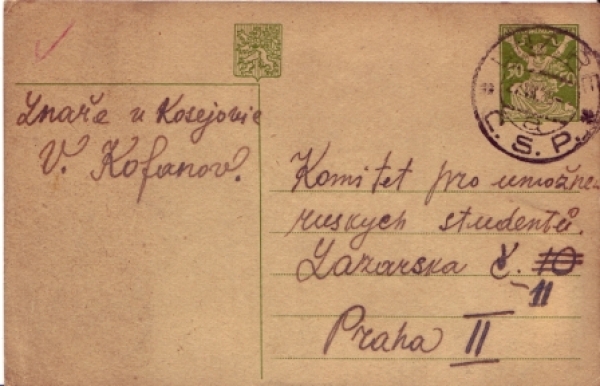 Lnaře u Kosejovic
V. Kofanov.
Komitet pro umožnen
ruskych studentů.
Lazarska č. 10
11
Praha II
50
LNÁŘE
Č.S.P.